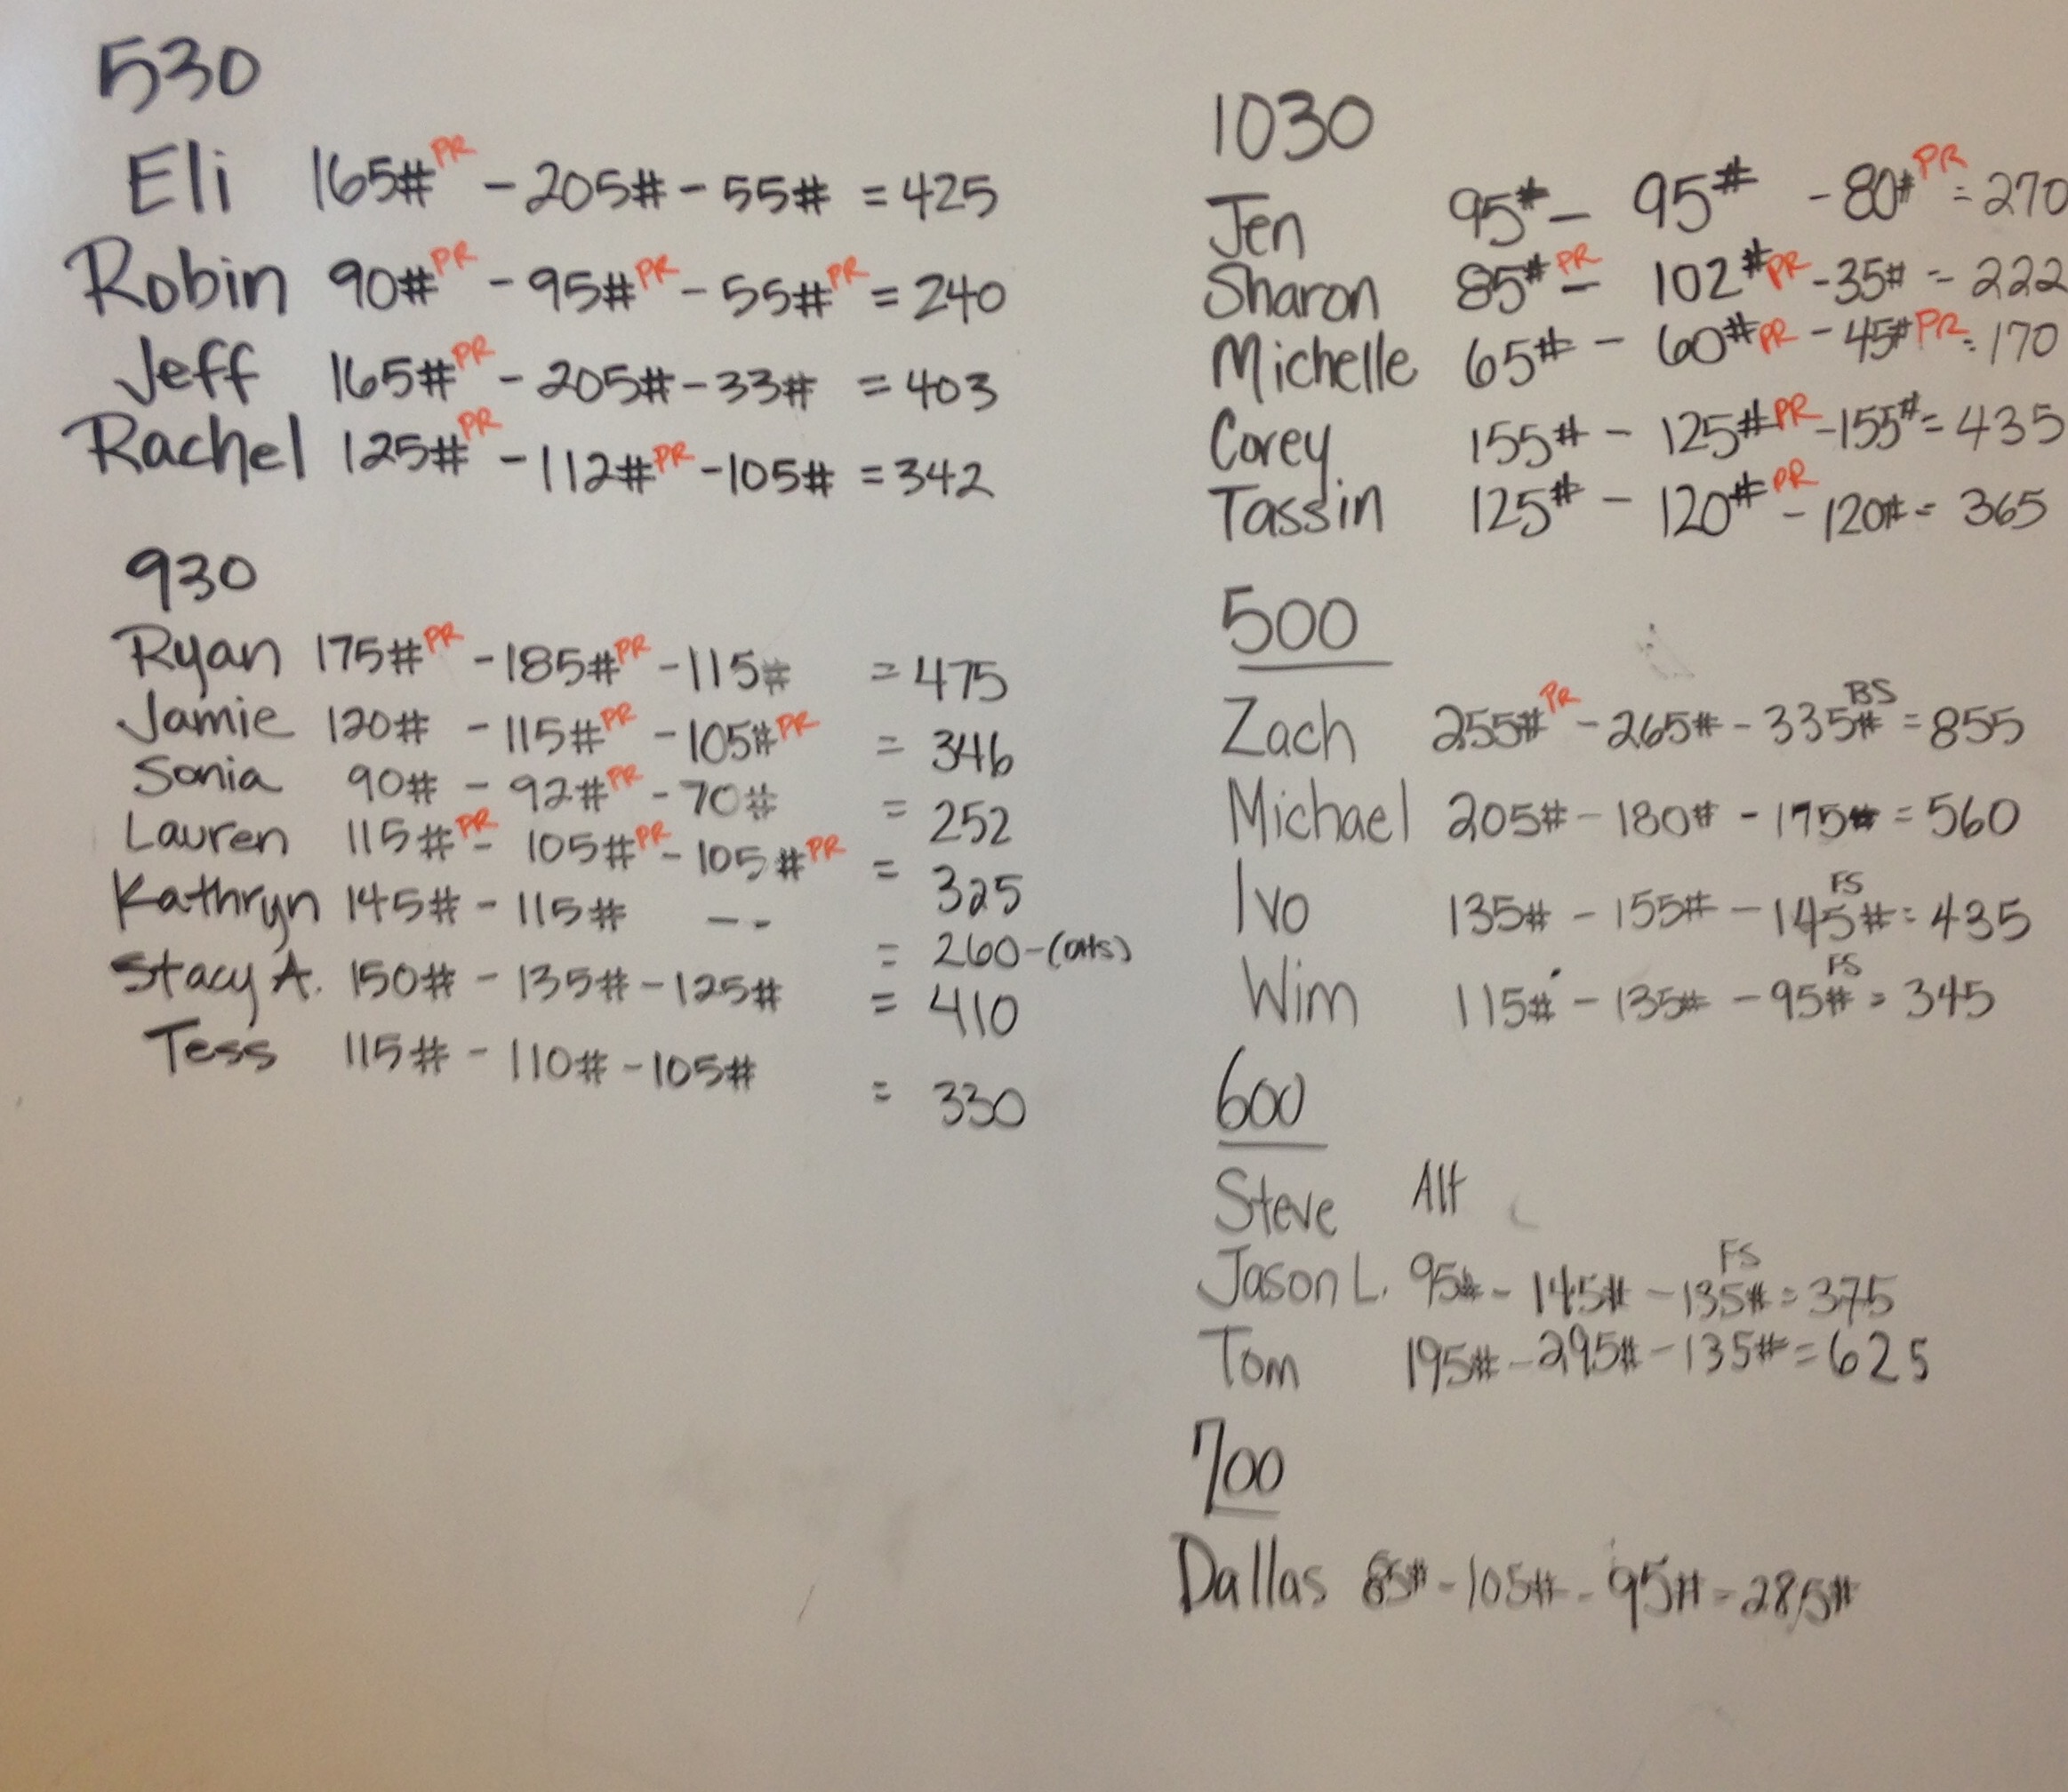 530
Eli 165#PR - 205# - 55# = 425
Robin 90#PR - 95#PR - 55#PR = 240
Jeff 165#PR - 205# - 33# = 403
Rachel 125#PR - 112#PR - 105# = 342
930
Ryan 175#PR - 185#PR - 115# = 475
Jamie 120# - 115#PR - 105#PR = 346
Sonia 90# - 92#PR - 70# = 252
Lauren 115#PR - 105#PR - 105#PR = 325
Kathryn 145# - 115# -- = 260 - (OHS)
Stacy A. 150# - 135# - 125# = 410
Tess 115# - 110# - 105# = 330
1030
Jen 95# - 95# - 80#PR = 270
Sharon 85#PR - 102#PR - 35# = 222
Michelle 65# - 60#PR - 45#PR = 170
Corey 155# - 125#PR - 155# = 435
Tassin 125# - 120#PR - 120# = 365
500
Zach 255#PR - 265# - 335# BS = 855
Michael 205# - 180# - 175# = 560
Ivo 135# - 155# - 145# FS = 435
Wim 115# - 135# - 95# FS = 345
600
Steve Alt
Jason L. 95# - 145# - 135# FS = 375
Tom 195# - 295# - 135# = 625
700
Dallas 85# - 105# - 95# = 285#